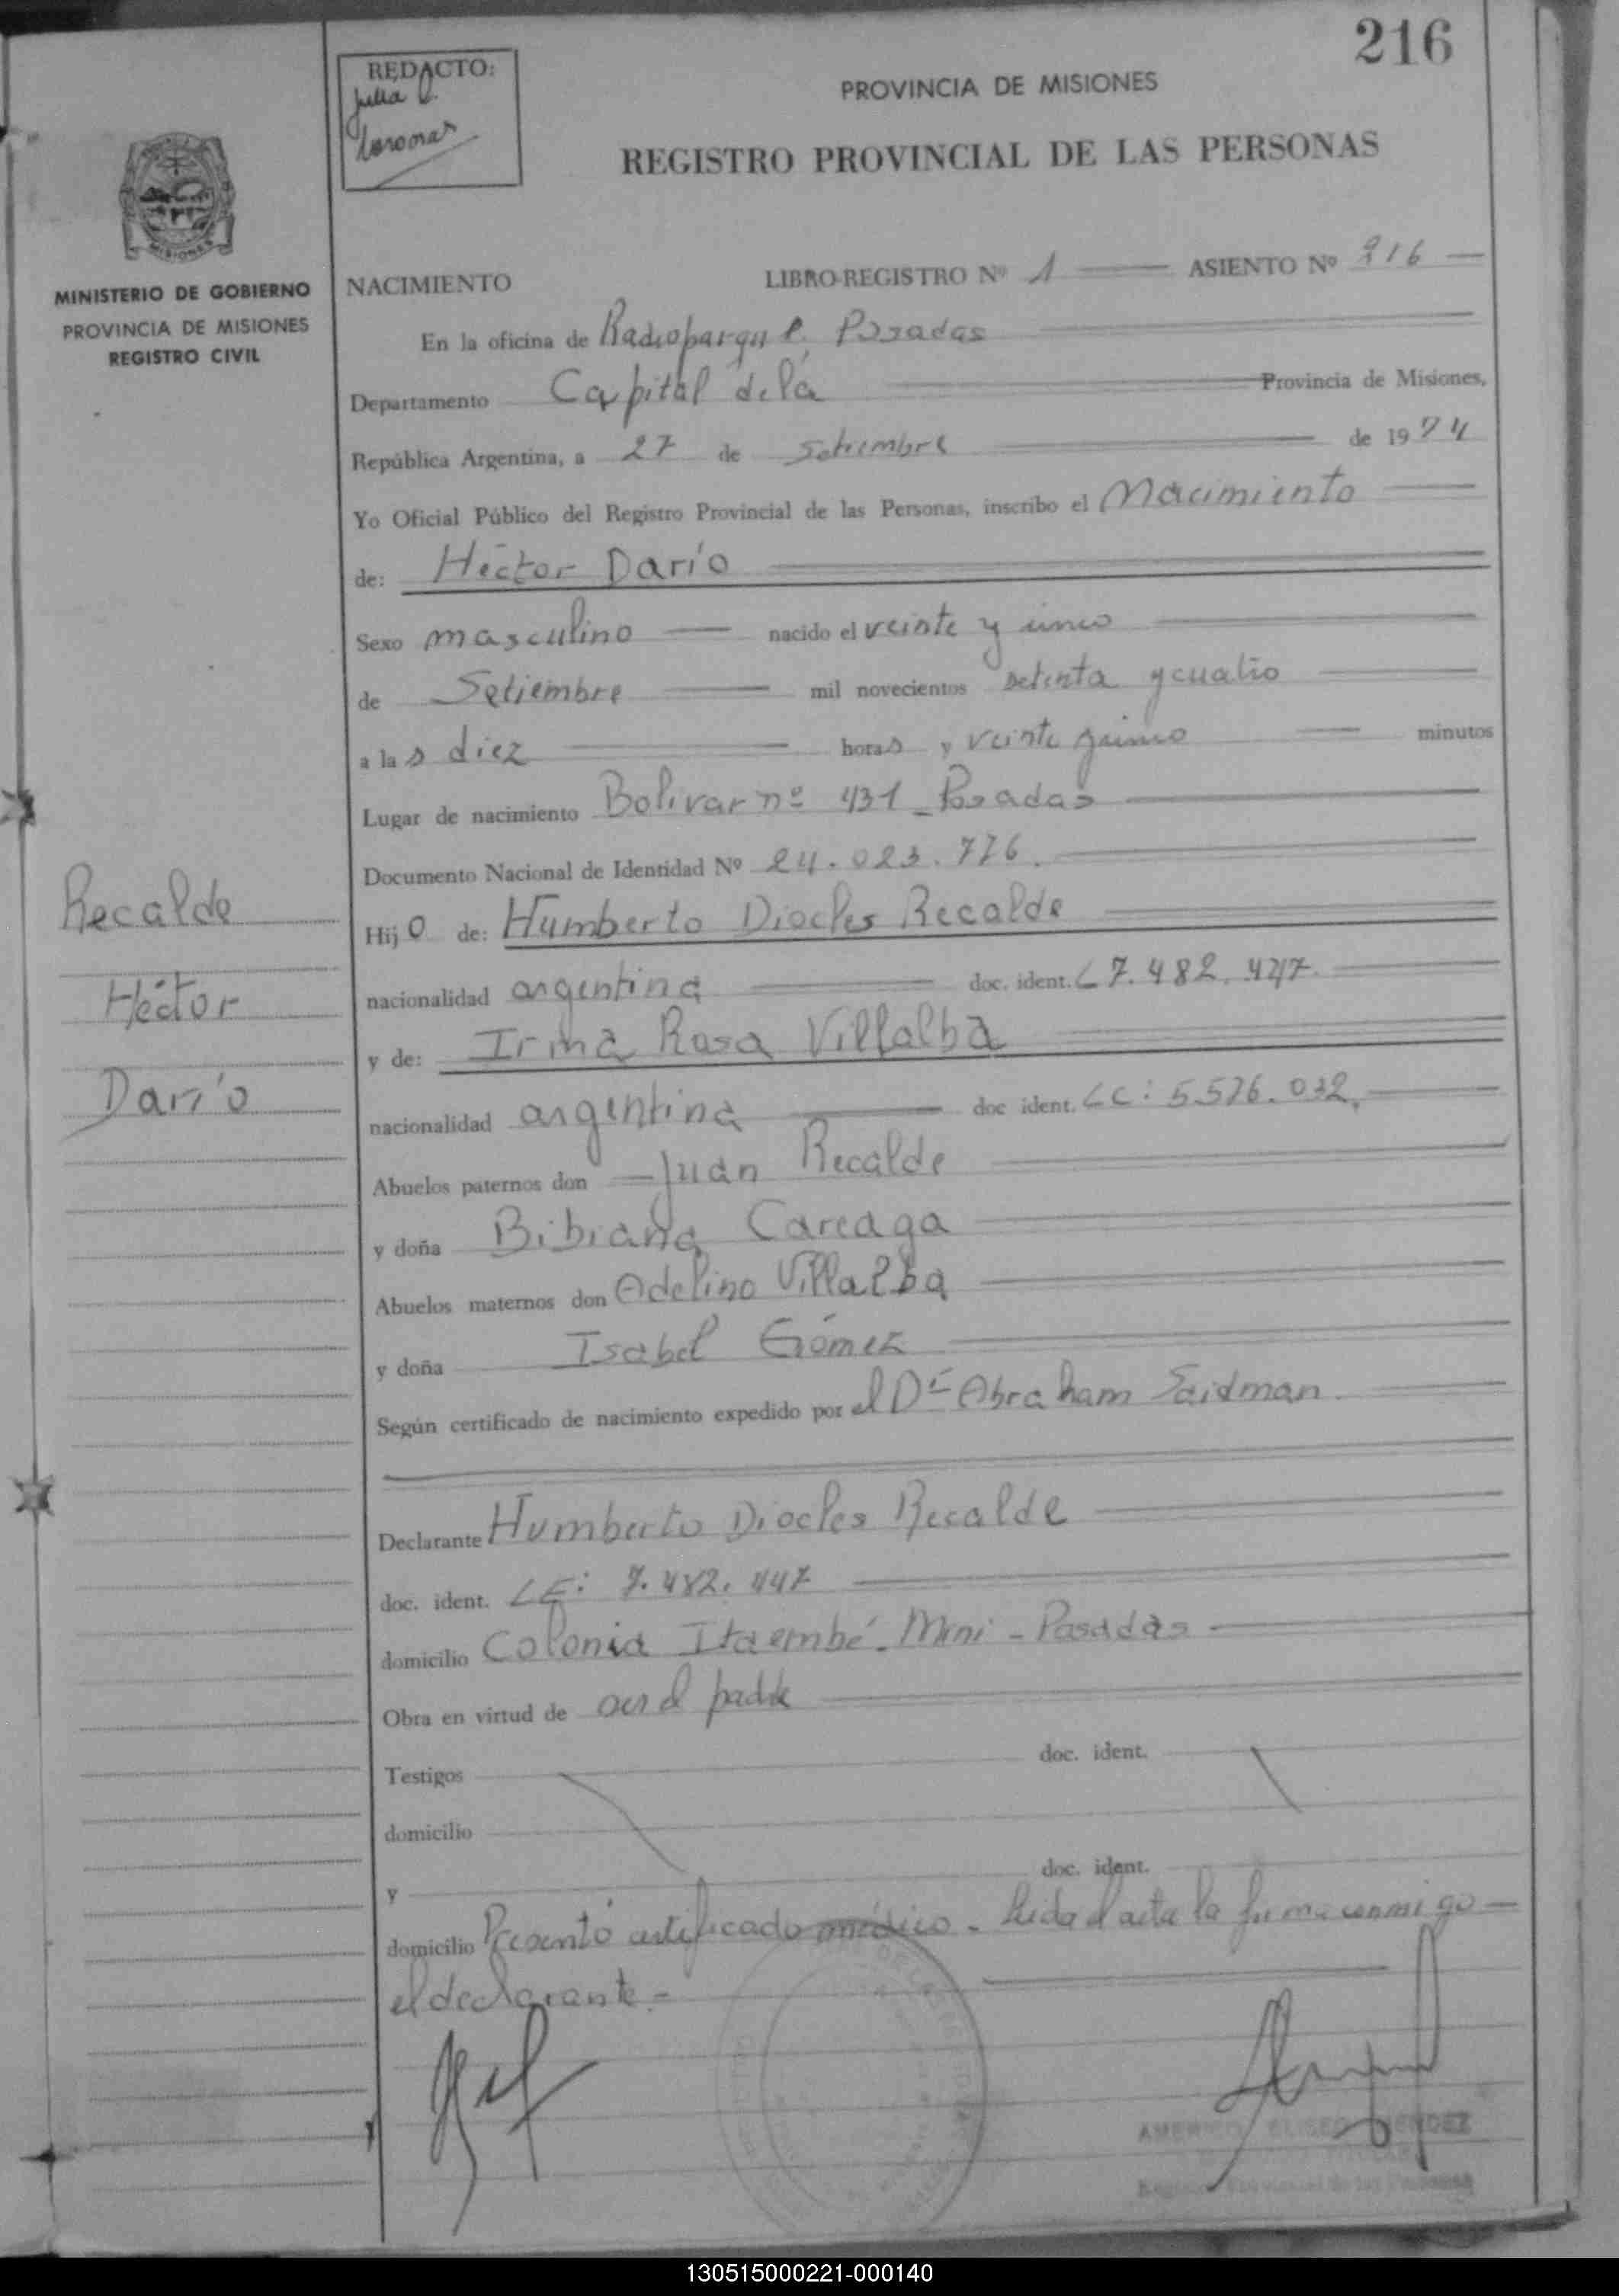 216
REDACTO:
Julia
PROVINCIA DE MISIONES
REGISTRO PROVINCIAL DE LAS PERSONAS
MISIONES
MINISTERIO DE GOBIERNO
PROVINCIA DE MISIONES
REGISTRO CIVIL
NACIMIENTO LIBRO-REGISTRO Nº 1 ASIENTO Nº 216
En la oficina de Radioparque, Posadas
Departamento Capital de la Provincia de Misiones,
República Argentina, a 27 de Setiembre de 1974
Yo Oficial Público del Registro Provincial de las Personas, inscribo el Nacimiento
de: Héctor Darío
Sexo masculino nacido el veinte y cinco
de Setiembre mil novecientos setenta y cuatro
a las diez horas y veinte y cinco minutos
Lugar de nacimiento Bolivar nº 431 - Posadas
Documento Nacional de Identidad Nº 24.023.776.
Hijo de: Humberto Diocles Recalde
nacionalidad argentina doc. ident. L 7.482.447.
y de: Irma Rosa Villalba
nacionalidad argentina doc ident. LC: 5.576.032.
Abuelos paternos don Juan Recalde
y doña Bibiana Careaga
Abuelos maternos don Adelino Villalba
y doña Isabel Gómez
Según certificado de nacimiento expedido por el Dr Abraham Saidman.
Declarante Humberto Diocles Recalde
doc. ident. LE: 7.482.447
domicilio Colonia Itaembé - Mini - Posadas
Obra en virtud de ser el padre
Testigos doc. ident.
domicilio
y doc. ident.
domicilio Presentó certificado médico - Leida el acta la firma conmigo
el declarante.-
Recalde
Héctor
Darío
AMERICO ELISEO MENDEZ
Registro Provincial de las Personas
130515000221-000140